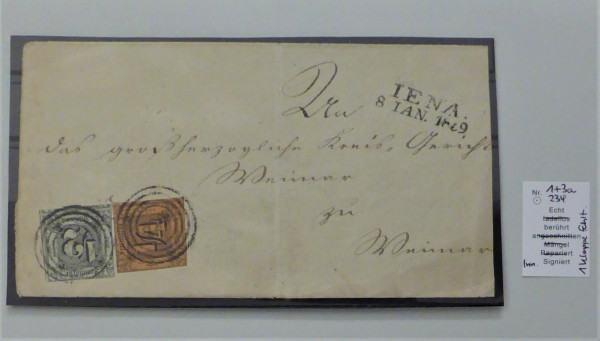 IENA.
8 IAN. 1869
An
das großherzogliche Kreis-Gericht
Weimar
zu
Weimar
Nr. 1+3a
234
Echt
tadellos
berührt
angeschnitten
Mängel
Repariert
Signiert
1 Klappe fehlt.